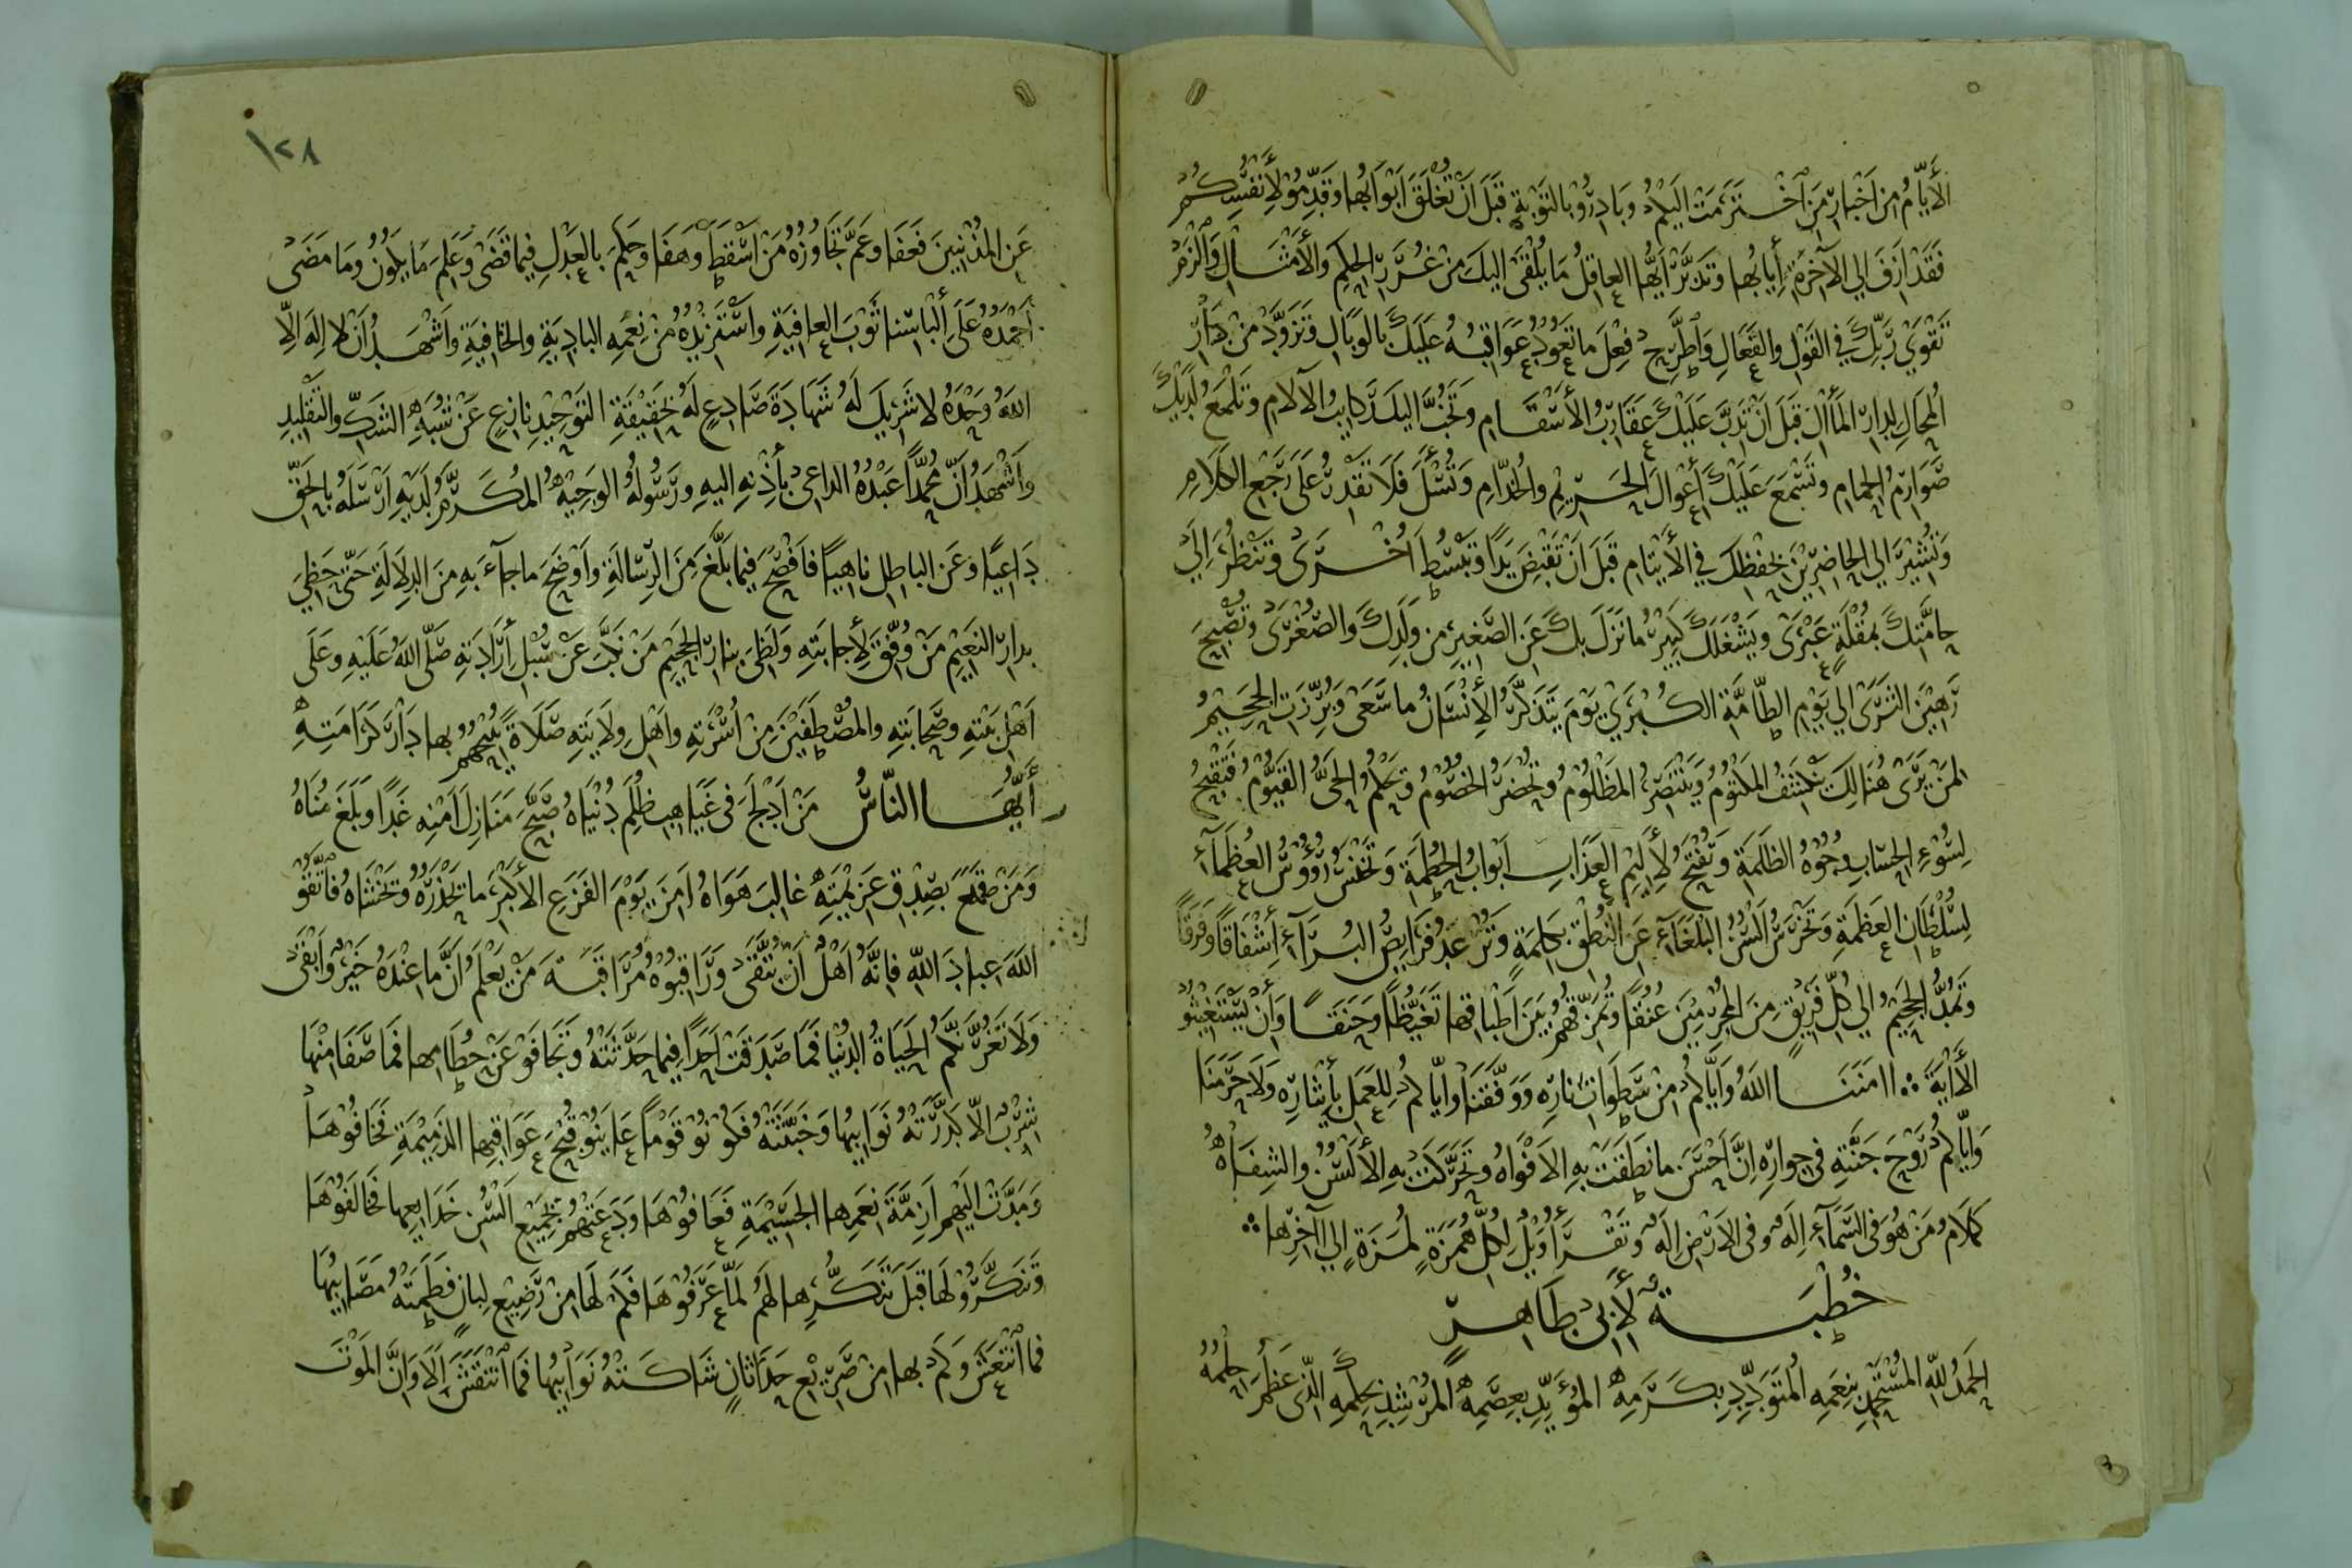 الأَيَّامُ مِنْ اَخْبَارِ مَنِ اخْتَرَمَتْ اليكُمْ وَبَادِرُوْا بالتَّوْبَةِ قَبْلَ اَنْ تُغْلَقَ اَبْوَابُها وقَدِّمُوْا لأَنْفُسِكُمْ
فَقَدْ اَزِفَ اِلي الآخِرَةِ إِيَابُها وتَدَبَّرْ اَيُّها العاقِلُ مَا يُلْقَى اليكَ مِنْ غُرَرِ الحِكَمِ والأَمْثَالِ وَالْزَمْ
تَقْوَيْ رَبِّكَ في القَوْلِ والفَعَالِ وَاطَّرِحْ فِعْلَ ما تَعُوْدُ عَوَاقِبُهُ عَلَيْكَ بالوَبَالِ وتَزَوَّدْ مِنْ دَارِ
المُحَالِ لِدارِ المَأٰلِ قَبْلَ اَنْ تَدِبَّ عَلَيْكَ عَقَارِبُ الأَسْقَامِ وتَخُبَّ اليكَ رَكايِبُ الآلامِ وتَلْمَعَ لَدَيْكَ
صَوَارِمُ الحِمَامِ وتَسْمَعَ عَلَيْكَ أَعْوَالَ الحَرِيْمِ والخُدَّامِ وَتُسْأَلَ فَلَا تَقْدِرُ عَلَى رَجْعِ الكَلَامِ
وَتُشِيْرَ اِلي الحاضِرِيْنَ بِحِفْظِكَ في الأَيْتامِ قَبْلَ اَنْ تَقْبِضَ يَدًا وتَبْسُطَ اُخْرَى وتَنْظُرَ اِلَيْ
حامَّتِكَ بمُقْلَةٍ عَبْرَى ويَشْغَلَكَ كَبِيْرُ ما نَزَلَ بِكَ عَنِ الصَّغِيْرِ مِن وَلَدِكَ وَالصُّغْرَى وتُصْبِحَ
رَهِيْنَ الثَّرَى اِلي يَوْمِ الطَّامَّةِ الكُبْرَيْ يَوْمَ يَتَذَكَّرُ الأِنْسَانُ ما سَعَى وَبُرِّزَتِ الجَحِيْمُ
لِمَنْ يَّرَى هُنَالِكَ يَنْكَشِفُ المَكْتُوْمُ وَيَنْتَصِرُ المَظْلُوْمُ وتَحْضَرُ الخُصُوْمُ ويَحْكُمُ الحَيُّ القَيُّوْمُ فتَقْبِحُ
لِسُوْءِ الحِسَابِ وُجُوْهُ الظَّلَمَةِ وَتُفْتَحُ لأَلِيْمِ العَذَابِ اَبْوَابُ الحُطَمَةِ وَتَخْنِسُ رُؤُوْسُ العُظَمَآءِ
لِسُلْطَانِ العَظَمَةِ وَتَخْرَسُ اَلْسُنُ البُلَغَآءِ عَنِ النُّطْقِ بكَلِمَةٍ وَتُرْعَدُ فَرَايِصُ البُرَآءِ إِشْفَاقًا وَفَرَقًا
وَتَمُدُّ الجَحِيْمُ اِلي كُلِّ فَرِيْقٍ مِنَ المُجْرِمِيْنَ عُنُقًا وتُمَزِّقُهُمْ بَيْنَ اَطْباقِها تَغَيُّظًا وحَنَقًا وَاَنْ يَّسْتَغِيْثُوْا
الأَايَةَ ؞ اامَنَنَا اللهُ وَايَّاكُمْ مِنْ سَطَوَاتِ نارِهِ وَوَفَّقَنا وايَّاكُمْ لِلعَمَلِ بأِيْثَارِهِ وَلَا حَرَمَنَا
وَايَّاكُمْ رَوْحَ جَنَّتِهِ في جِوارِهِ اِنَّ اَحْسَنَ ما نَطَقَتْ بِهِ الاَفْوَاهُ وتَحَرَّكَتْ بِهِ الأَلْسُنُ والشِفَاهُ
كَلَامُ مَنْ هُوَ فى السَّمَآءِ اِلَهٌ وفى الاَرْضِ اِلَهٌ وتَقْرَأُ وَيْلٌ لِكُلِّ هُمَزَةٍ لُمَزَةٍ اِلي اٰخِرِها ؞
خُطْبَةٌ لأَبِى طَاهِرٍ
الحَمْدُ لِلّهِ المُسْتَحْمِدِ بنِعَمِهِ المُتَوَدِّدِ بِكَرَمِهِ المُؤَيِّدِ بعِصَمِهِ المُرْشِدِ بحِكَمِهِ الَّذِى عَظُمَ حِلْمُهُ
١٢٨
عَنِ المُذْنِبِيْنَ فَعَفَا وعَمَّ تَجَاوُزُهُ مَنْ اَسْقَطَ وَهَفَا وحَكَمَ بالعَدْلِ فِيما قَضَىْ وَعَلِمَ مَا يكُوْنُ وَمَا مَضَى
اَحْمَدُهُ عَلَى اِلْبَاسِنا ثَوْبَ العافِيَةِ واَسْتَزِيْدُهُ مِنْ نِعَمِهِ البادِيَةِ والخافِيَةِ واَشْهَدُ اَنْ لا اِلَهَ اِلَّا
اللهُ وَحْدَهُ لا شَرِيْكَ لَهُ شَهادَةَ صَادِعٍ لَهُ بحَقِيْقَةِ التَوْحِيْدِ نازِعٍ عَنْ شُبَهِ الشَّكِّ والتَقْلِيْدِ
واَشْهَدُ اَنَّ مُحَمَّدًا عَبْدُهُ الداعِىْ بأِذْنِهِ اليهِ ورَسُوْلُهُ الوَجِيْهُ المُكَرَّمُ لَدَيْهِ اَرْسَلَهُ بالحَقِّ
دَاعِيًا وَعَنِ الباطِلِ ناهِيًا فاَفْصَحَ فِيما بَلَّغَ مِنَ الرِّسَالَةِ واَوْضَحَ ما جآءَ بِهِ مِنَ الدِلَالَةِ حَتَّى حَظِيَ
بدارِ النَعِيْمِ مَنْ وُفِّقَ لأِجابَتِهِ ولَظِيَ بنارِ الجَحِيْمِ مَنْ نَكَّبَ عَنْ سُبُلِ أِرَادَتِهِ صَلَّى اللهُ عَلَيْهِ وعَلَى
اَهْلِ بَيْتِهِ وصَحَابَتِهِ والمُصْطَفَيْنَ مِنْ اُسْرَتِهِ واَهْلِ وِلَايَتِهِ صَلَاةً يُبِيْحُهُمْ بها دَارَ كَرَامَتِهِ
أَيُّهَا النَّاسُ مَنْ اَدْلَجَ فى غَيَاهِبِ ظُلَمِ دُنْيَاهُ صَبَّحَ مَنَازِلَ اَمْنِهِ غَدًا وبَلَغَ مُنَاهُ
وَمَنْ قمَعَ بصِدْقِ عَزِيْمَتِهِ غالِبَ هَوَاهُ اَمِنَ يَوْمَ الفَزَعِ الاَكْبَرِ ما يَحْذَرُهُ ويَخْشَاهُ فاتَّقُوْا
اللهَ عِبادَ اللهِ فاِنَّهُ اَهْلُ اَنْ يُّتَّقَى وَرَاقِبُوْهُ مُرَاقَبَةَ مَنْ يَّعْلَمُ اَنَّ ما عِنْدَهُ خَيْرٌ وَاَبْقَى
وَلَا تَغُرَّنَّكُمُ الحَيَاةُ الدُنْيَا فَمَا صَدَقَتْ اَحَدًا فِيما حَدَّثَتْهُ وتَجَافَوْا عَنْ حُطَامِها فَمَا صَفَا مِنْهَا
شِرْبٌ اِلَّا كَدَّرَتْهُ نَوَايِبُها وَخَبَّثَتْهُ فكُوْنُوْا قَوْمًا عايَنُوْا قُبْحَ عَوَاقِبِها الذَمِيْمَةِ فَخَافُوْهَا
وَمَدَّتْ اِلَيْهِمْ اَزِمَّةَ نِعَمِها الجَسِيْمَةِ فَعَافُوْهَا وَدَعَتْهُمْ بجَمِيْعِ اَلْسُنِ خَدَايِعِها فَخَالَفُوْهَا
وتَنَكَّرُوْا لَها قَبْلَ تَنَكُّرِها لَهُمْ لَمَّا عَرَفُوْهَا فَكَمْ لَها مِنْ رَضِيْعِ لِبانٍ فَطَمَتْهُ مَصَايِبُها
فما انْتَعَشَ وَكَمْ بها مِنْ صَرِيْعِ حَدَثانٍ شَاكَتْهُ نَوَايِبُها فَمَا انْتَقَشَ اَلَا وَاِنَّ المَوْتَ